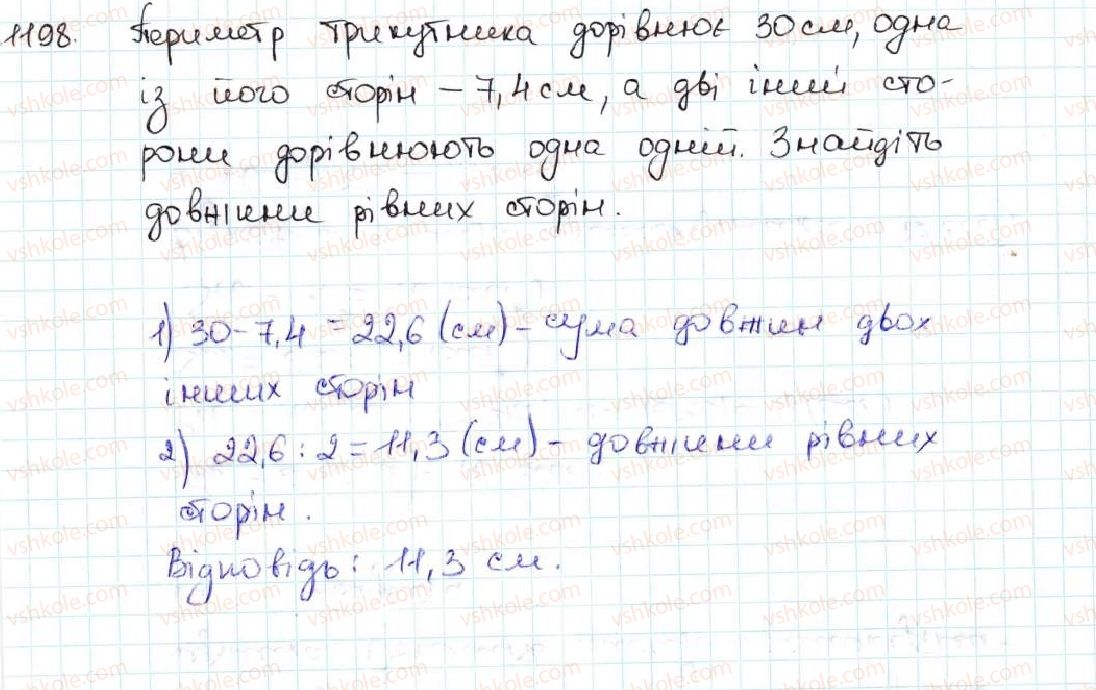 1198. Периметр трикутника дорівнює 30 см, одна
із його сторін – 7,4 см, а дві інші сто-
рони дорівнюють одна одній. Знайдіть
довжини рівних сторін.
1) 30 - 7,4 = 22,6 (см) - сума довжин двох
інших сторін
2) 22,6 : 2 = 11,3 (см) - довжини рівних
сторін.
Відповідь: 11,3 см.